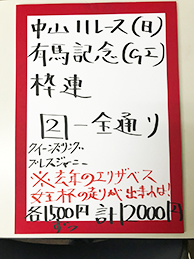 中山11レース(日)
有馬記念(GI)
枠連
2-全通り
クイーンズリング
ブレスジャーニー
※去年のエリザベス
女王杯の走りが出来れば!
各1500円 計12000円
ずつ